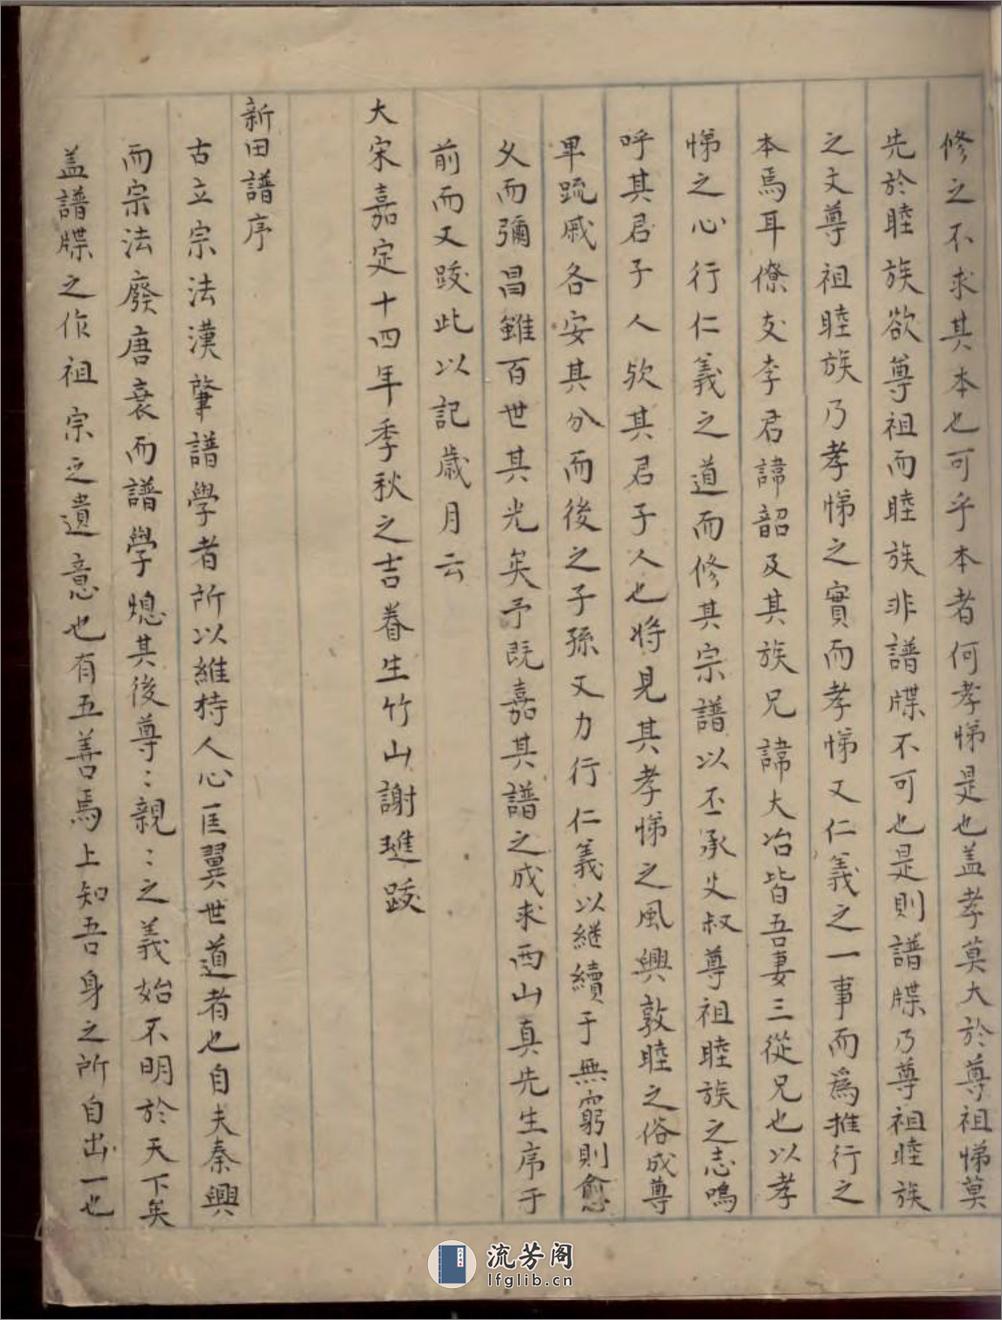 修之不求其本也可乎本者何孝悌是也盖孝莫大於尊祖悌莫
先於睦族欲尊祖而睦族非譜牒不可也是則譜牒乃尊祖睦族
之文尊祖睦族乃孝悌之實而孝悌又仁義之一事而爲推行之
本焉耳僚友李君諱韶及其族兄諱大冶皆吾妻三從兄也以孝
悌之心行仁義之道而修其宗譜以丕承父叔尊祖睦族之志嗚
呼其君子人欤其君子人也將見其孝悌之風興敦睦之俗成尊
卑疏戚各安其分而後之子孫又力行仁義以継續于無窮則愈
久而彌昌雖百世其光矣予既嘉其譜之成求西山真先生序于
前而又跋此以記歲月云
大宋嘉定十四年季秋之吉眷生竹山謝璡跋
新田譜序
古立宗法漢肇譜學者所以維持人心匡翼世道者也自夫秦興
而宗法廢唐衰而譜學熄其後尊〻親〻之義始不明於天下矣
盖譜牒之作祖宗之遺意也有五善焉上知吾身之所自出一也
流芳阁
lfglib.cn